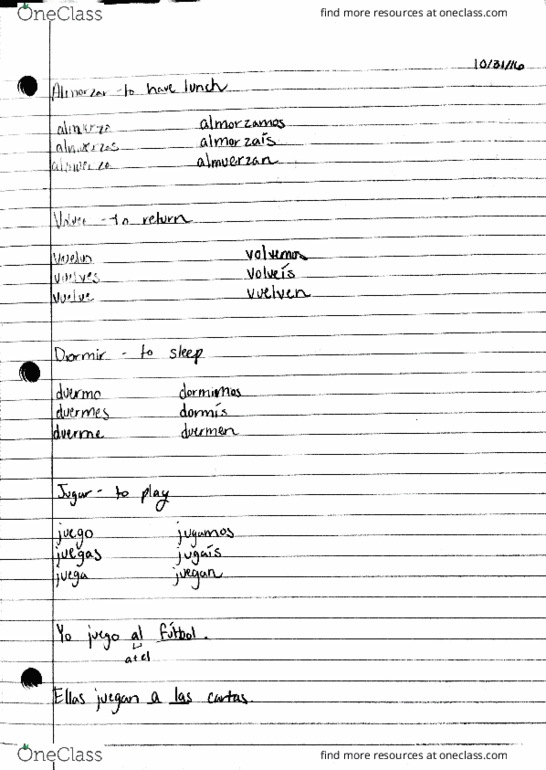 OneClass find more resources at oneclass.com
10/31/16
Almorzar - to have lunch
almuerzo almorzamos
almuerzas almorzaís
almuerza almuerzan
Volver - to return
vuelvo volvemos
vuelves volveís
vuelve vuelven
Dormir - to sleep
duermo dormimos
duermes dormís
duerme duermen
Jugar - to play
juego jugamos
juegas jugaís
juega juegan
Yo juego al fútbol.
a+el
Ellas juegan a las cartas.
OneClass find more resources at oneclass.com